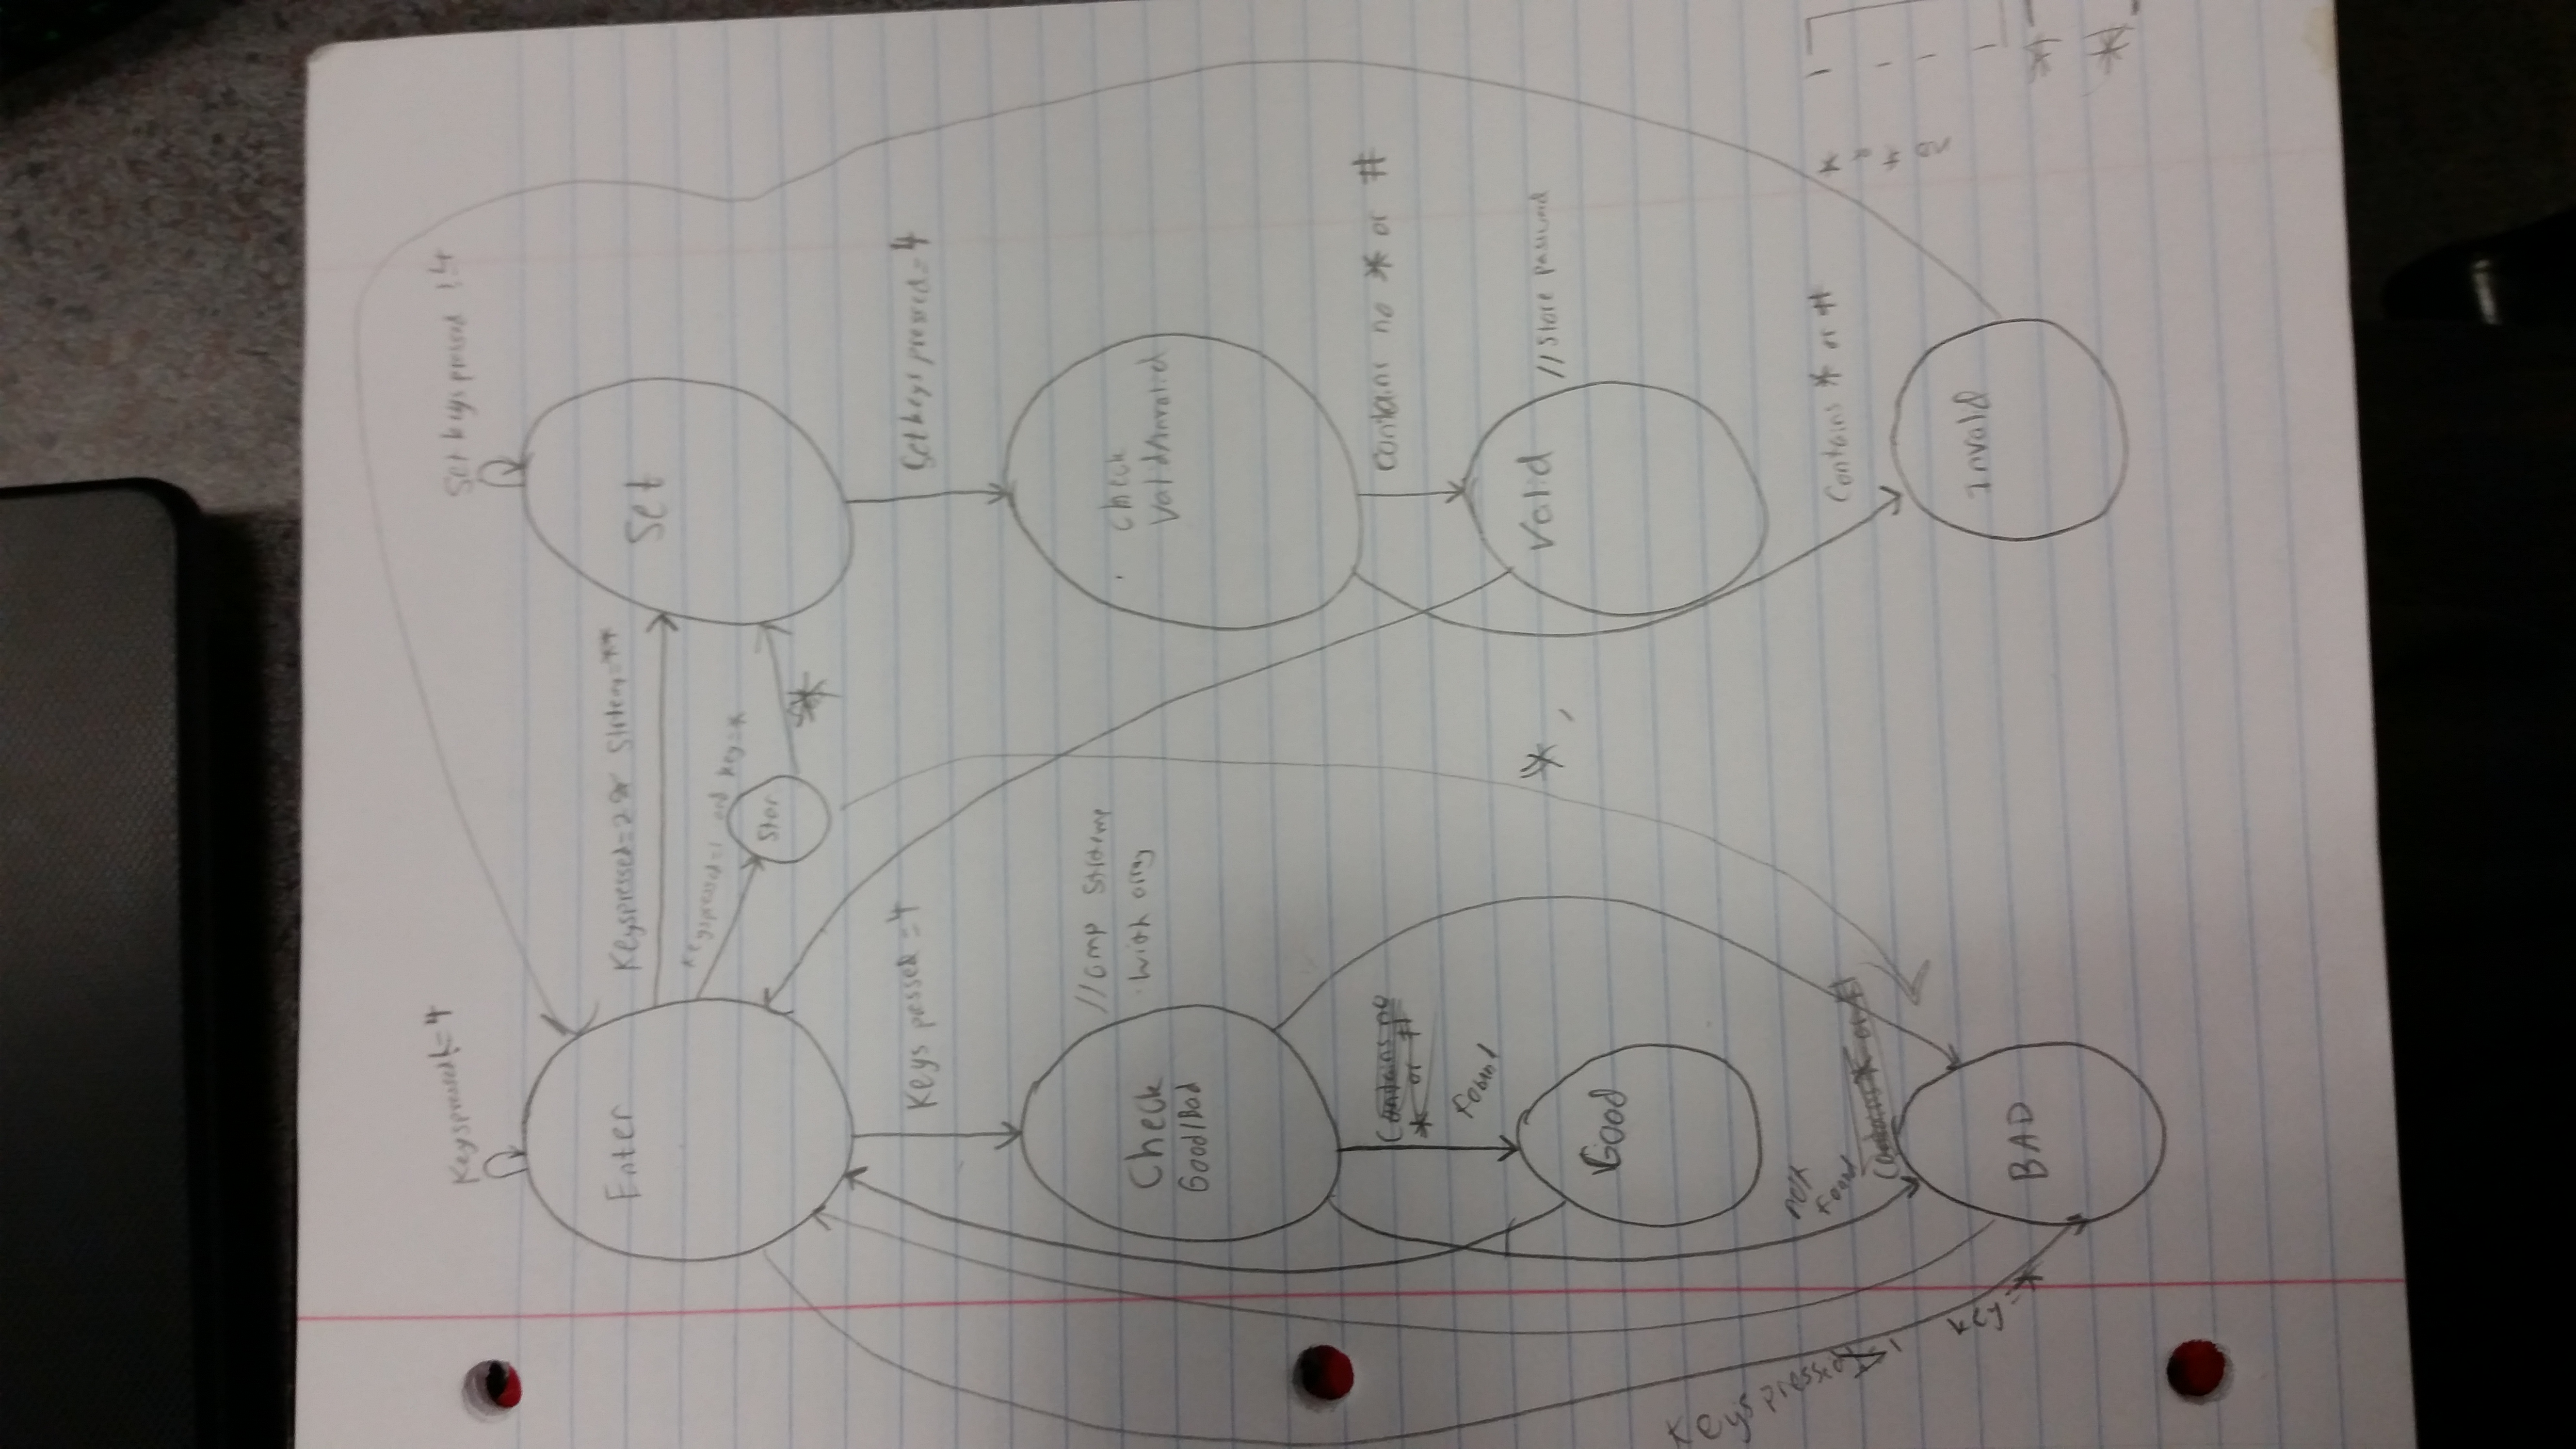 Keyspressed!=4
Set keys pressed !4
Enter
Keyspressed=2 & Strtemp=**
Set
Keyspressed=1 and key=*
Star
*
Keys pressed =4
Setkeys pressed=4
//Cmp Strtemp
with array
Check
Good/Bad
Check
Valid/invalid
Contains no
* or #
Found
Contains no * or #
*
Valid
//Store password
Good
not
found
Contains * or #
Contains * or #
Invalid
BAD